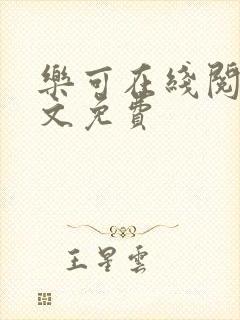 樂可在綫閱
文免費
王星雲